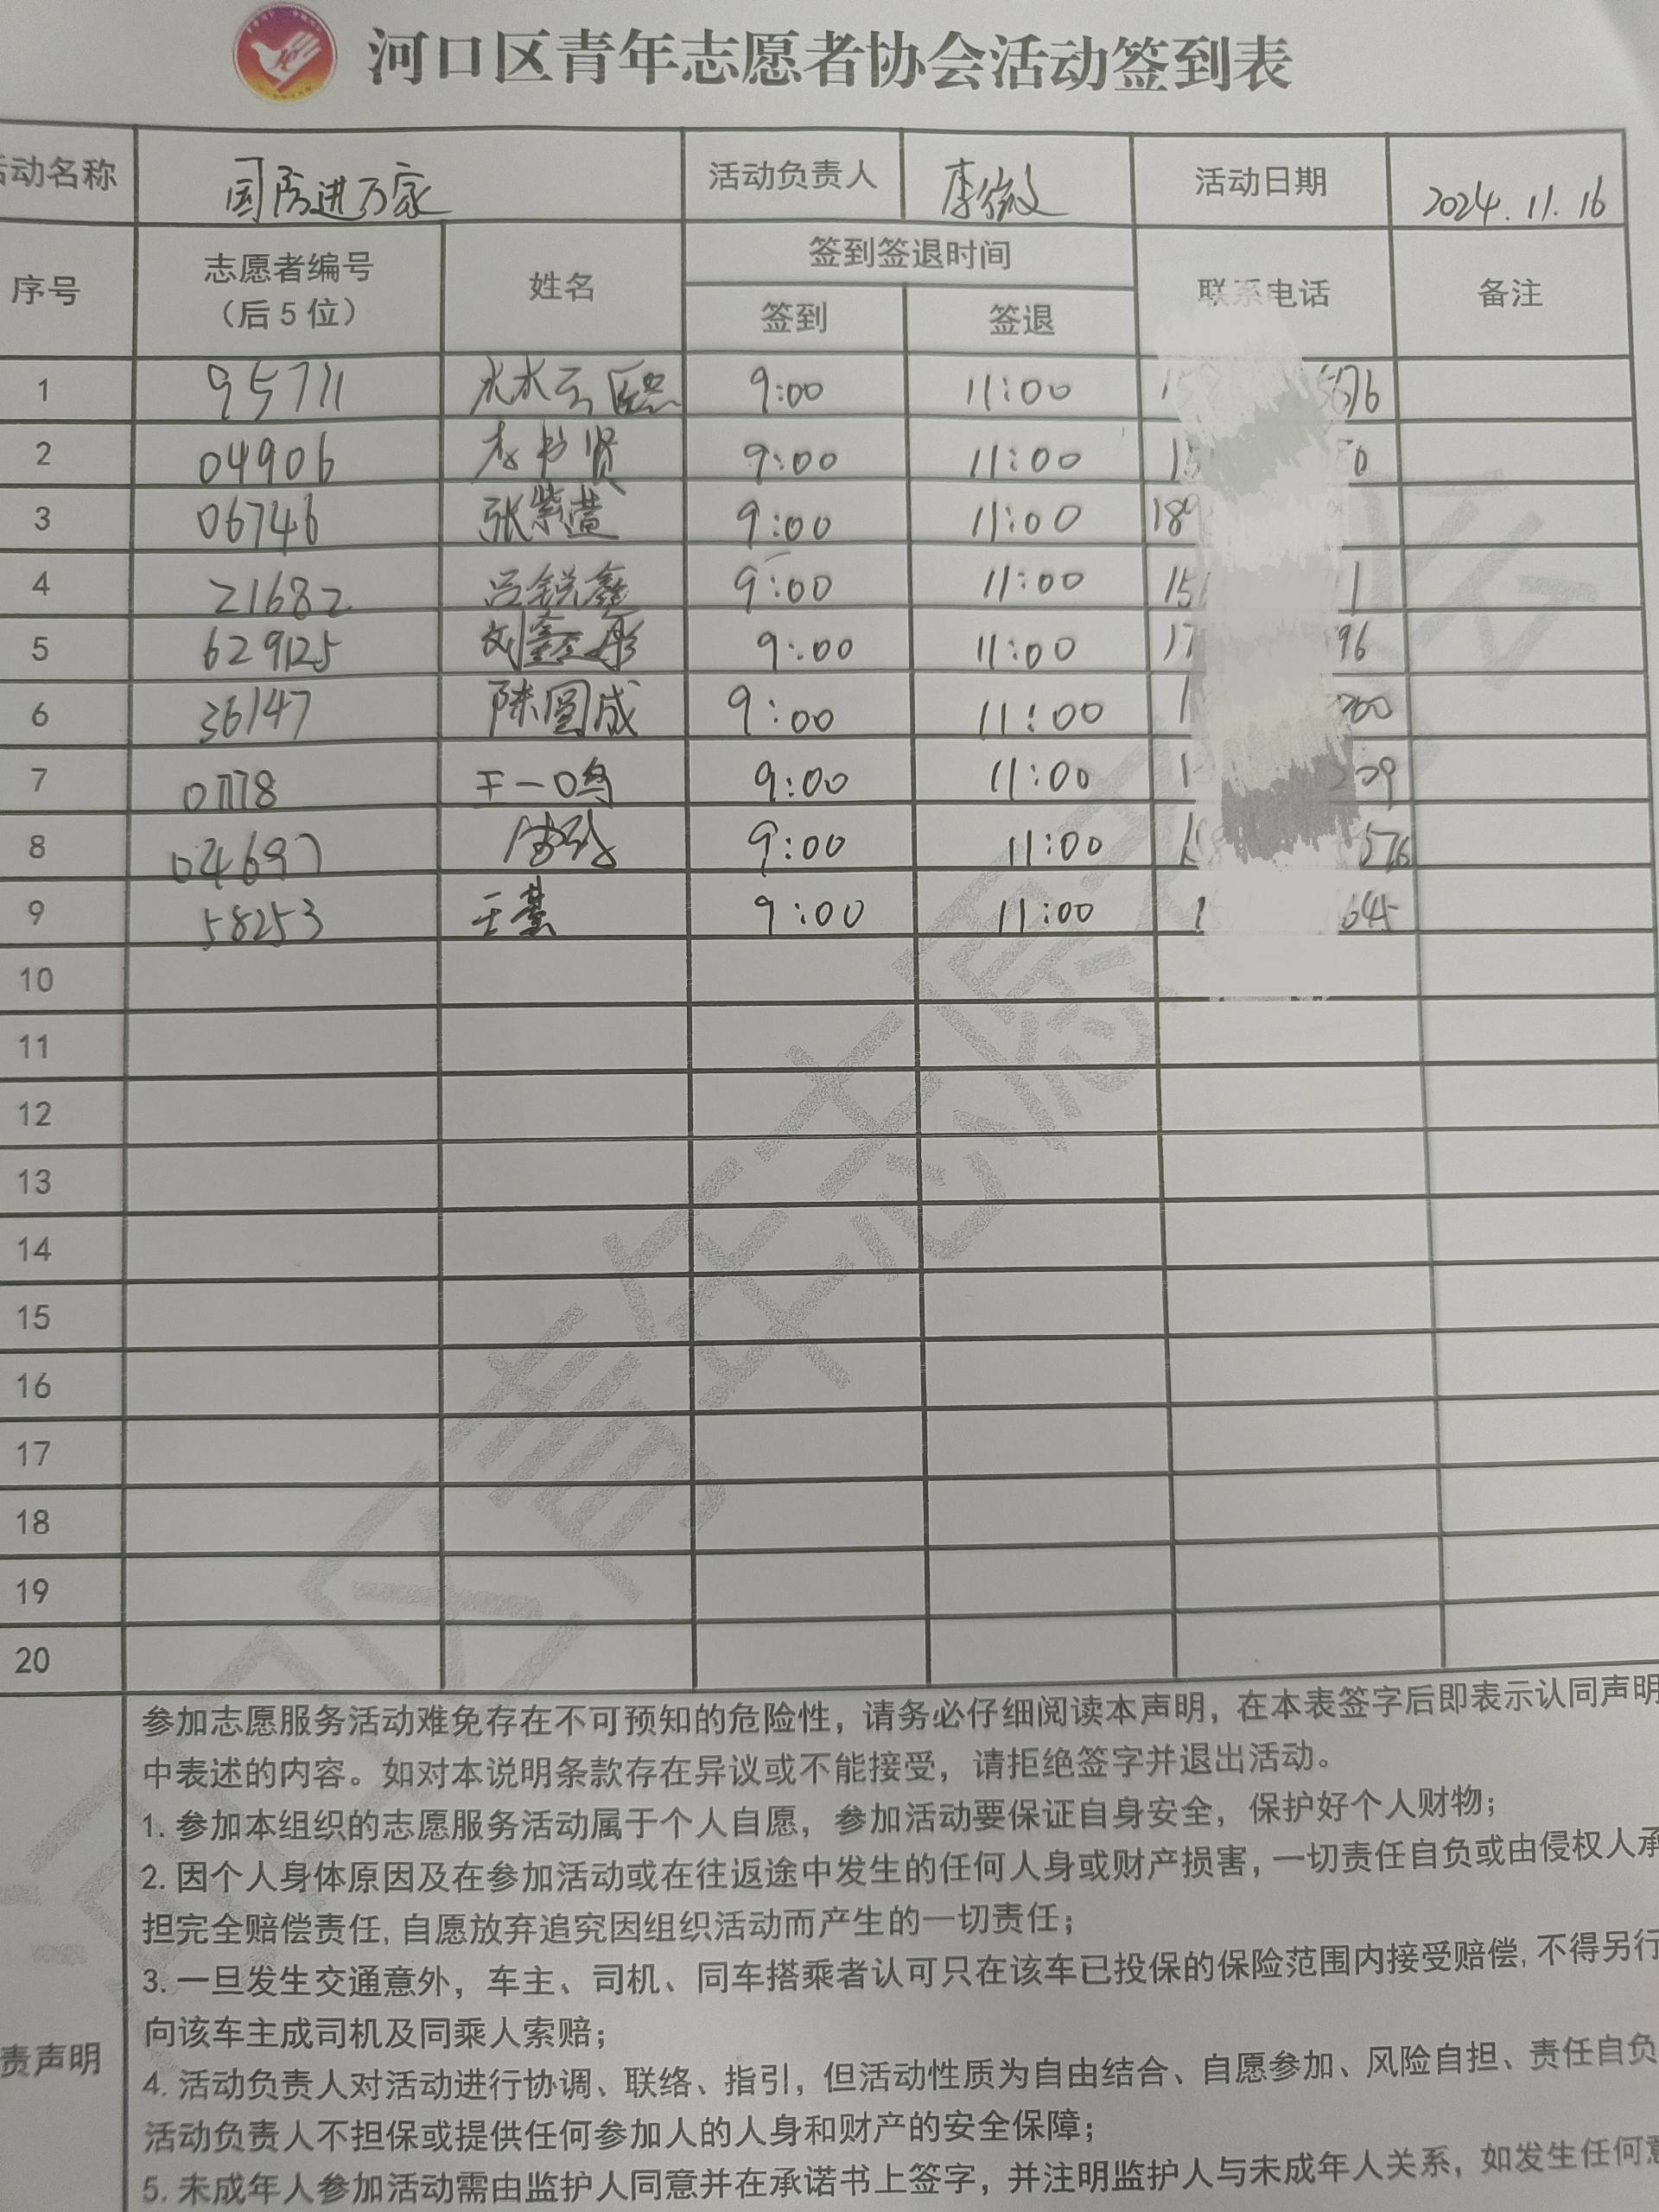 河口区青年志愿者协会活动签到表
活动名称 国防进万家 活动负责人 李俊 活动日期 2024.11.16
序号 志愿者编号（后5位） 姓名 签到签退时间 联系电话 备注
签到 签退
1 95711 9:00 11:00
2 04906 李书贤 9:00 11:00
3 06746 张紫萱 9:00 11:00
4 21682 吕锐鑫 9:00 11:00
5 629125 刘鑫彤 9:00 11:00 96
6 36147 陈国成 9:00 11:00
7 9:00 11:00
8 04697 9:00 11:00
9 58253 9:00 11:00 645
10
11
12
13
14
15
16
17
18
19
20
参加志愿服务活动难免存在不可预知的危险性，请务必仔细阅读本声明，在本表签字后即表示认同声明
中表述的内容。如对本说明条款存在异议或不能接受，请拒绝签字并退出活动。
1. 参加本组织的志愿服务活动属于个人自愿，参加活动要保证自身安全，保护好个人财物；
2. 因个人身体原因及在参加活动或在往返途中发生的任何人身或财产损害，一切责任自负或由侵权人承
担完全赔偿责任, 自愿放弃追究因组织活动而产生的一切责任；
3. 一旦发生交通意外，车主、司机、同车搭乘者认可只在该车已投保的保险范围内接受赔偿, 不得另行
向该车主成司机及同乘人索赔；
责声明
4. 活动负责人对活动进行协调、联络、指引，但活动性质为自由结合、自愿参加、风险自担、责任自负
活动负责人不担保或提供任何参加人的人身和财产的安全保障；
5. 未成年人参加活动需由监护人同意并在承诺书上签字，并注明监护人与未成年人关系，如发生任何意